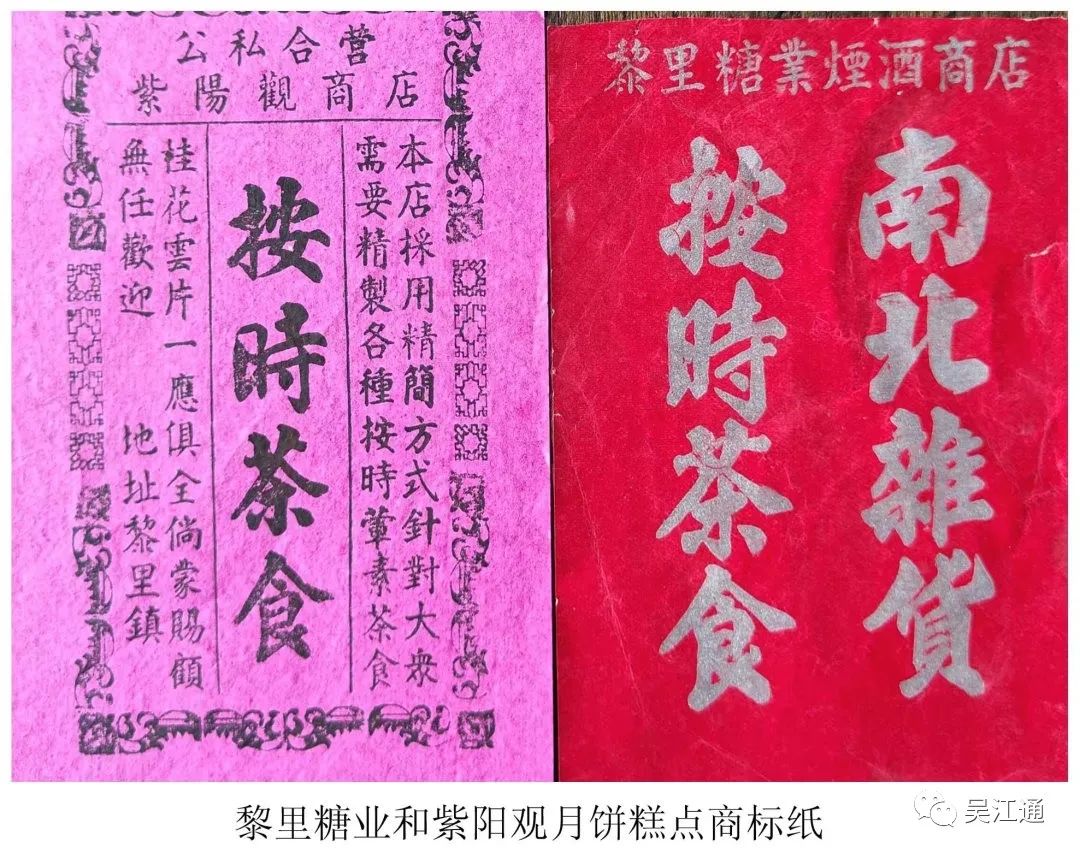 公私合营
紫陽觀商店
本店採用精簡方式針對大衆
需要精製各種按時葷素茶食
按時茶食
桂花雲片一應俱全倘蒙賜顧
無任歡迎 地址黎里鎮
黎里糖業煙酒商店
南北雜貨
按時茶食
黎里糖业和紫阳观月饼糕点商标纸
吴江通